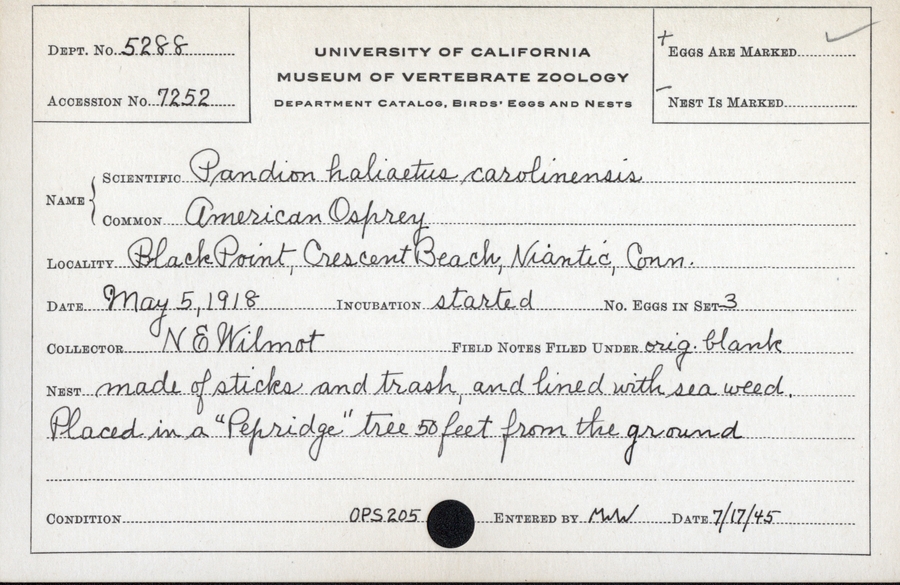 DEPT. NO. 5288
ACCESSION NO. 7252
UNIVERSITY OF CALIFORNIA
MUSEUM OF VERTEBRATE ZOOLOGY
DEPARTMENT CATALOG, BIRDS' EGGS AND NESTS
+ EGGS ARE MARKED ✓
- NEST IS MARKED
NAME { SCIENTIFIC Pandion haliaetus carolinensis
COMMON American Osprey
LOCALITY Black Point, Crescent Beach, Niantic, Conn.
DATE May 5, 1918 INCUBATION started NO. EGGS IN SET 3
COLLECTOR N E Wilmot FIELD NOTES FILED UNDER orig. blank
NEST made of sticks and trash, and lined with sea weed.
Placed in a "Pepridge" tree 50 feet from the ground
CONDITION OPS205 ENTERED BY MWW DATE 7/17/45